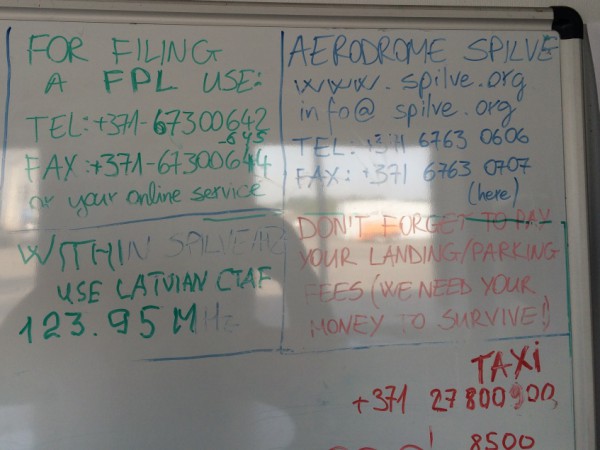 FOR FILING
A FPL USE:
TEL: +371-67300642
-645
FAX: +371-67300644
or your online service
AERODROME SPILVE
www.spilve.org
info@spilve.org
TEL: +371 6763 0606
FAX: +371 6763 0707
(here)
WITHIN SPILVE
USE LATVIAN CTAF
123.95 MHz
DON'T FORGET TO PAY
YOUR LANDING/PARKING
FEES (WE NEED YOUR
MONEY TO SURVIVE!)
TAXi
+371 27 800900
8500